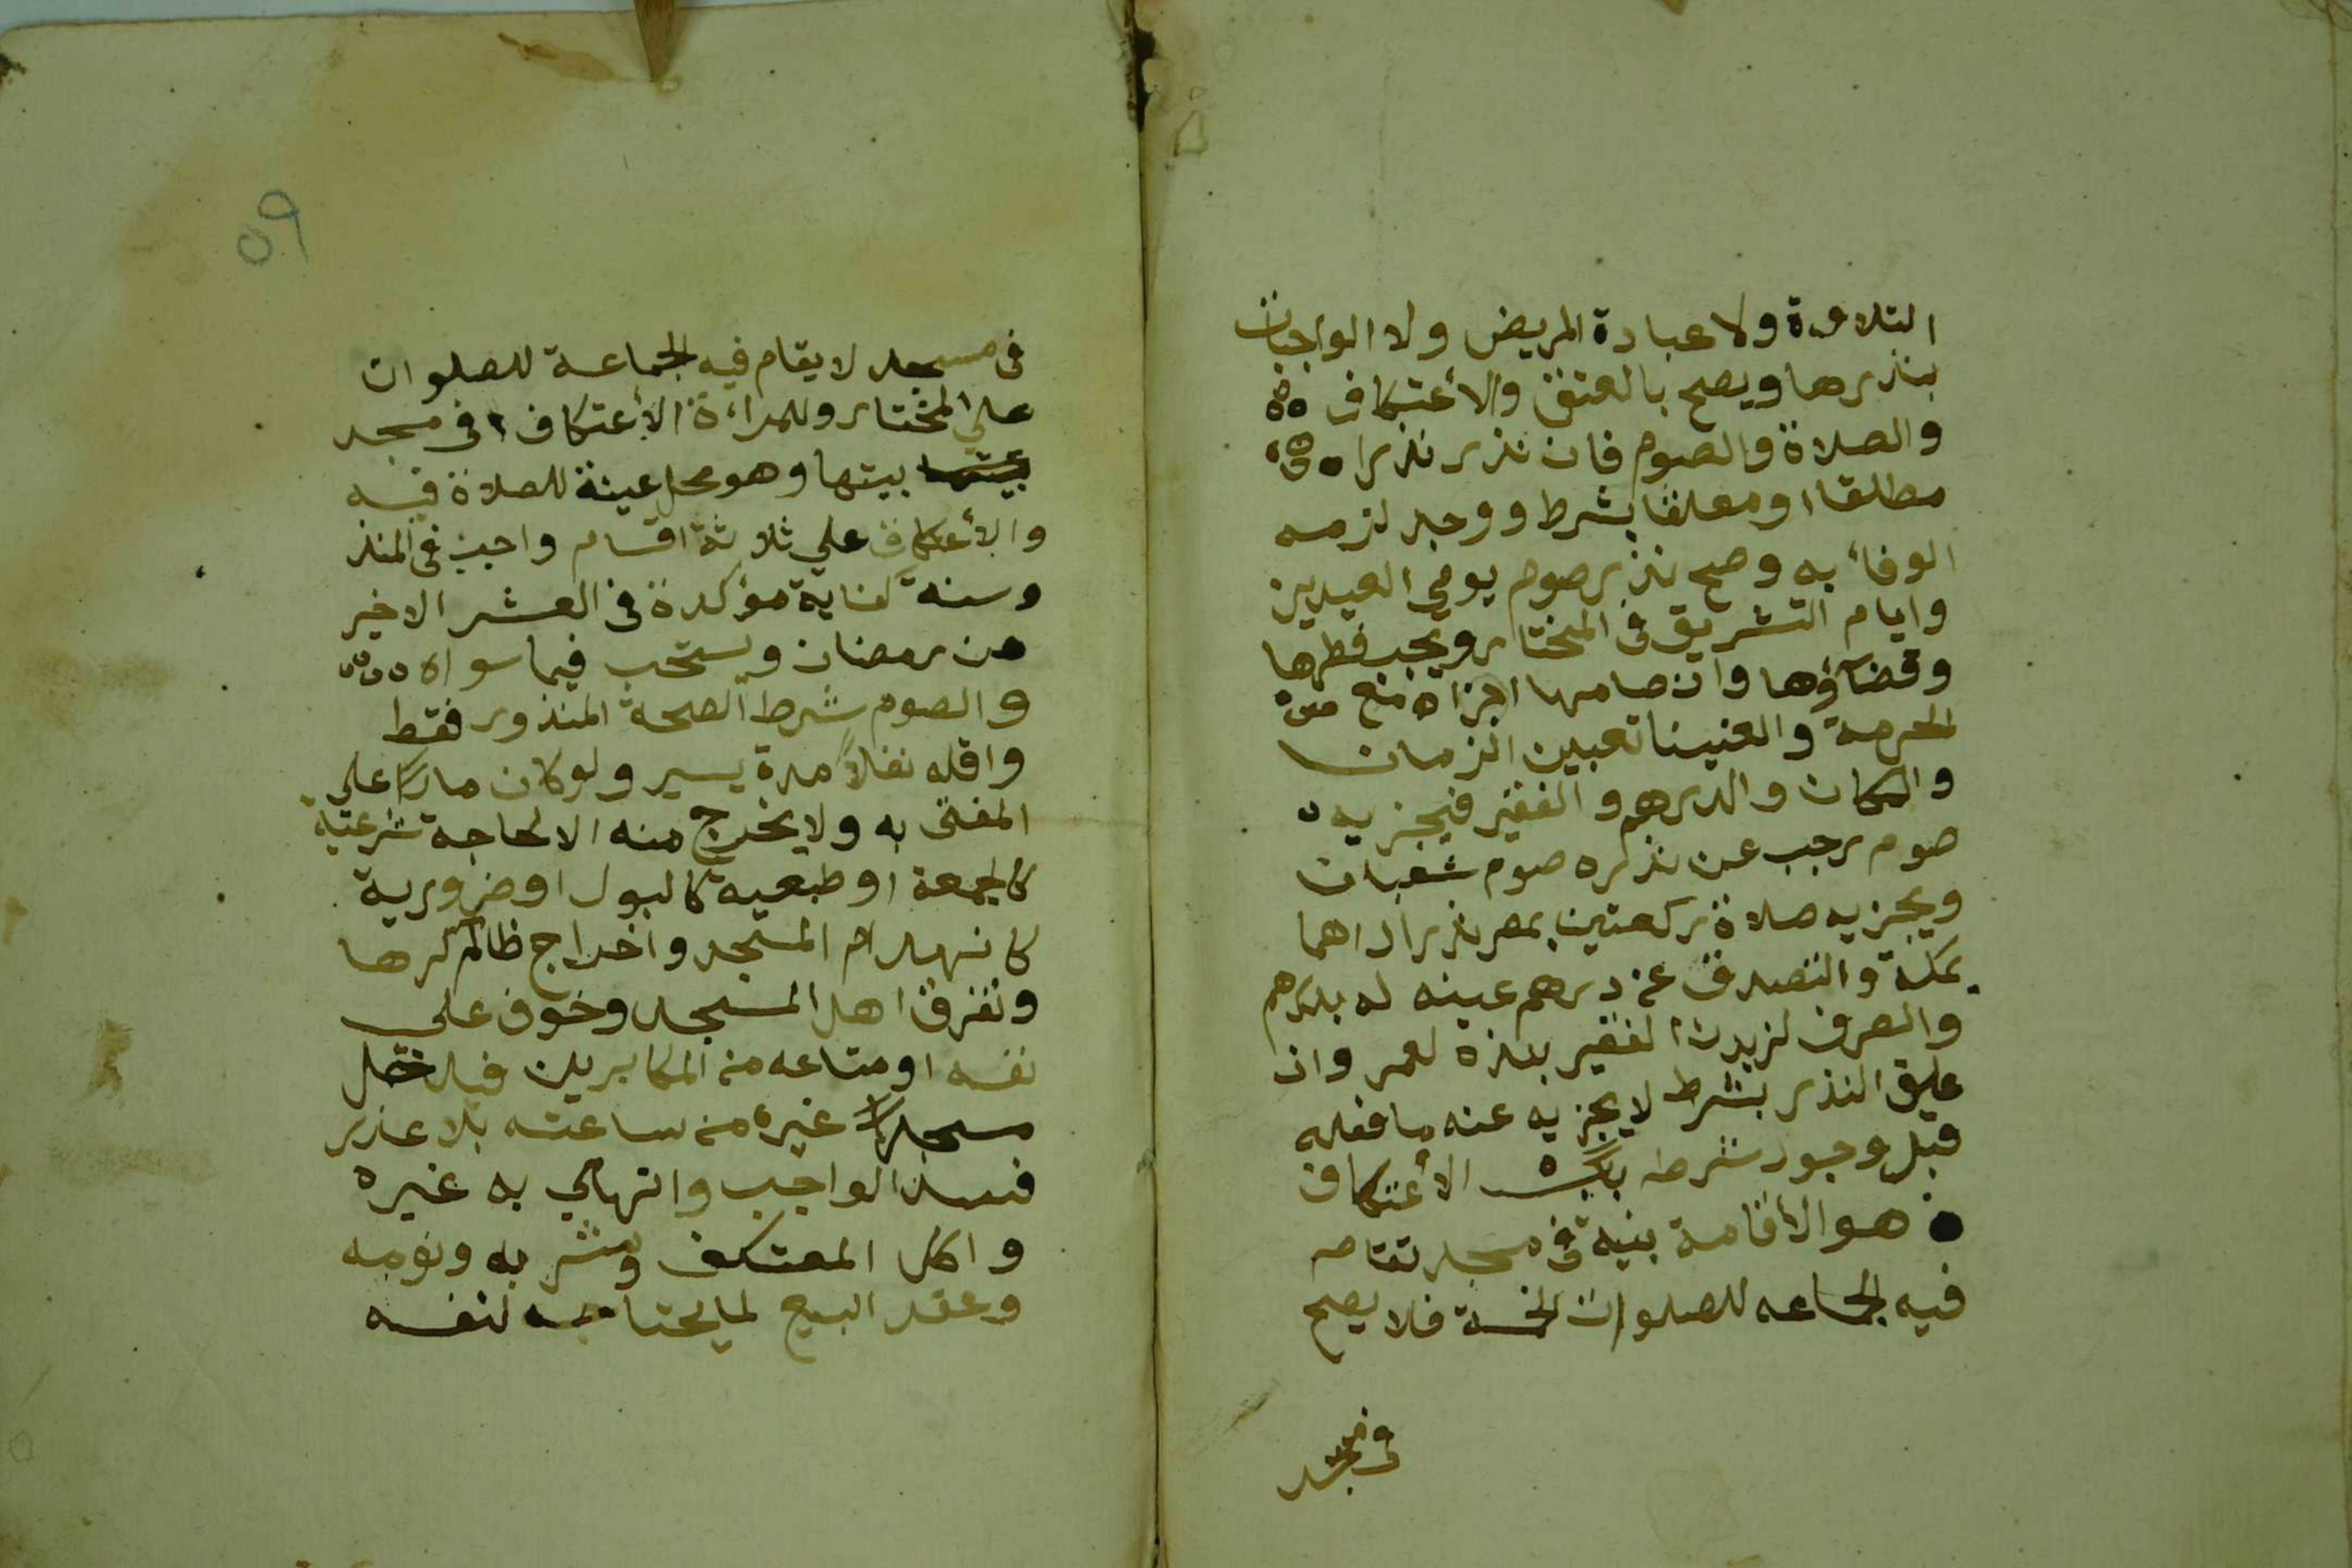 التلاوة ولا عبادة المريض ولا الواجبات
بنذرها ويصح بالعتق والأعتكاف
والصلاة والصوم فان نذر نذرا
مطلقا او معلقا بشرط ووجد لزمه
الوفاء به وصح نذر صوم يومي العيدين
وايام التشريق في المختار ويجب فطرها
وقضاؤها وان صامها اجزاه مع
الحرمة والغينا تعيين الزمان
والمكان والدرهم والفقير فيجزيه
صوم رجب عن نذره صوم شعبان
ويجزيه صلاة ركعتين بمصر نذر اداهما
بمكة والتصدق عن درهم عينه له بدرهم
والصرف لزيد الفقير بنذره لعمر وان
علق النذر بشرط لا يجزيه عنه ما فعله
قبل وجود شرطه باب الأعتكاف
هو الأقامة بنية في مسجد تقام
فيه الجماعه للصلوات الخمسة فلا يصح
في مسجد
٥٩
في مسجد لا يقام فيه الجماعة للصلوات
علي المختار وللمراءة الأعتكاف في مسجد
بيتها وهو محل عينة للصلاة فيه
والأعتكاف علي ثلاثة اقسام واجب في المنذ
وسنة كفاية مؤكدة في العشر الاخير
من رمضان ويستحب فيما سواه
والصوم شرط الصحة المنذور فقط
واقله نفلاً مدة يسير ولو كان ماراً علي
المفتى به ولا يخرج منه الا لحاجة شرعية
كالجمعة او طبعية كالبول او ضرورية
كانهدام المسجد واخراج ظالم كرها
وتفرق اهل المسجد وخوف علي
نفسه او متاعه من المكابرين فيدخل
مسجداً غيره من ساعته بلا عذر
فسد الواجب وانتهي به غيره
واكل المعتكف وشربه ونومه
وعقد البيع لما يحتاجه لنفسه